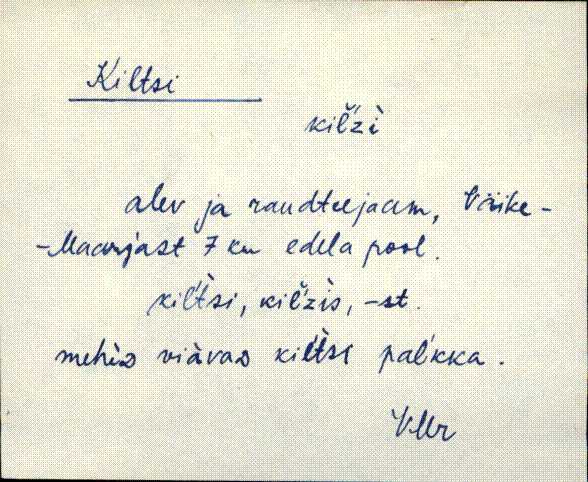 Kiltsi
kiĺ̆zì
alev ja raudteejaam, Väike-
-Maarjast 7 km edela pool.
kiĺ̆t̀si, kiĺ̆zìs, -st.
mehèD viàvaD kiĺ̆t̀si paĺkka.
VMr